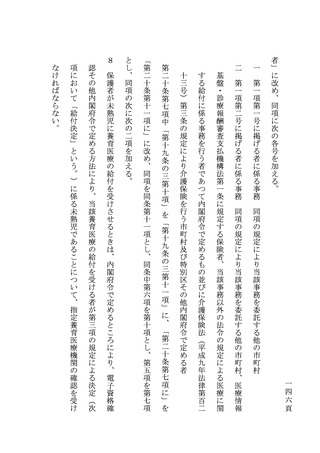 一四六頁
者」に改め、同項に次の各号を加える。
一　第一項第一号に掲げる者に係る事務　同項の規定により当該事務を委託する他の市町村
二　第一項第二号に掲げる者に係る事務　同項の規定により当該事務を委託する他の市町村、医療情報
基盤・診療報酬審査支払機構法第一条に規定する保険者、当該事務以外の法令の規定による医療に関
する給付に係る事務を行う者であつて内閣府令で定めるもの並びに介護保険法（平成九年法律第百二
十三号）第三条の規定により介護保険を行う市町村及び特別区その他内閣府令で定める者
第二十条第七項中「第十九条の三第十項」を「第十九条の三第十一項」に、「第二十条第七項に」を
「第二十条第十一項に」に改め、同項を同条第十一項とし、同条中第六項を第十項とし、第五項を第七項
とし、同項の次に次の二項を加える。
８　保護者が未熟児に養育医療の給付を受けさせるときは、内閣府令で定めるところにより、電子資格確
認その他内閣府令で定める方法により、当該養育医療の給付を受ける者が第三項の規定による決定（次
項において「給付決定」という。）に係る未熟児であることについて、指定養育医療機関の確認を受け
なければならない。